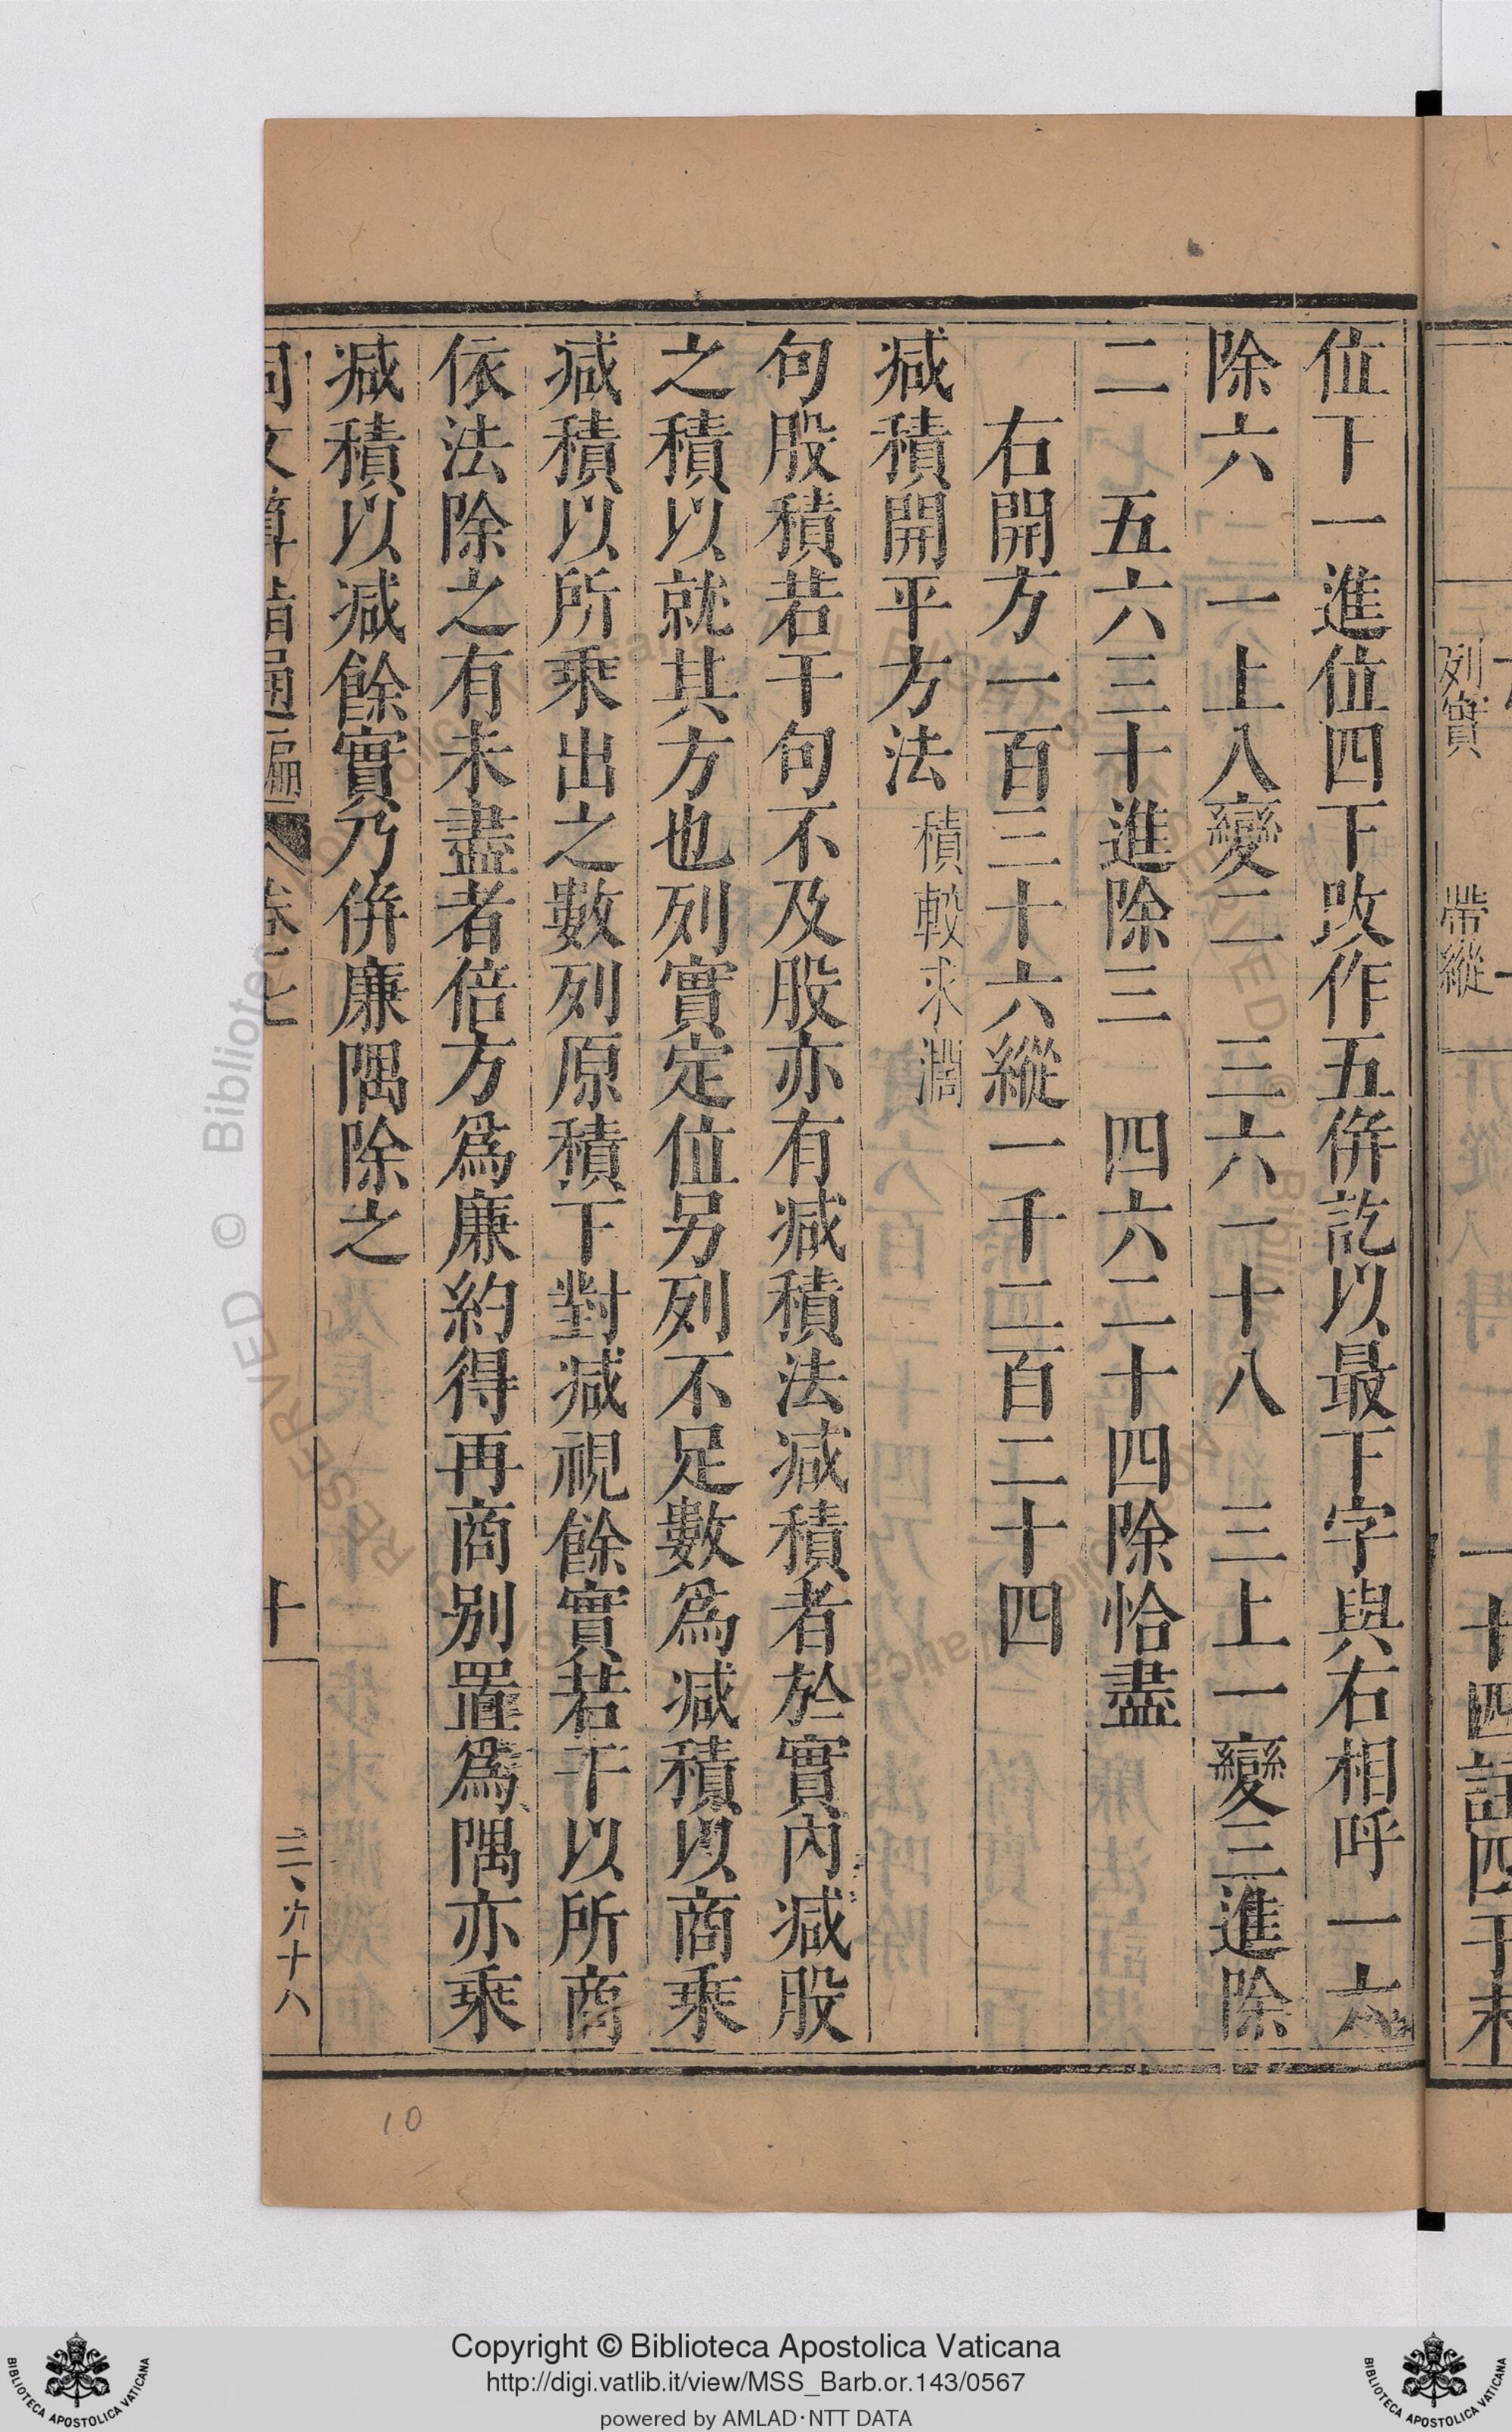 位下一進位四下改作五併訖以最下字與右相呼一六
除六　一上八變二　三六一十八　三上一變三進除
二　五六三十進除三　四六二十四除恰盡
右開方一百三十六縱一千二百二十四
減積開平方法　積較求濶
句股積若干句不及股亦有減積法減積者於實內減股
之積以就其方也列實定位另列不足數為減積以商乘
減積以所乘出之數列原積下對減視餘實若干以所商
依法除之有未盡者倍方為廉約得再商別置為隅亦乘
減積以減餘實乃併廉隅除之
同文算指通編　卷七　十　三、九十八
列實　帶縱
10
Copyright © Biblioteca Apostolica Vaticana
http://digi.vatlib.it/view/MSS_Barb.or.143/0567
powered by AMLAD·NTT DATA
BIBLIOTECA APOSTOLICA VATICANA
BIBLIOTECA APOSTOLICA VATICANA